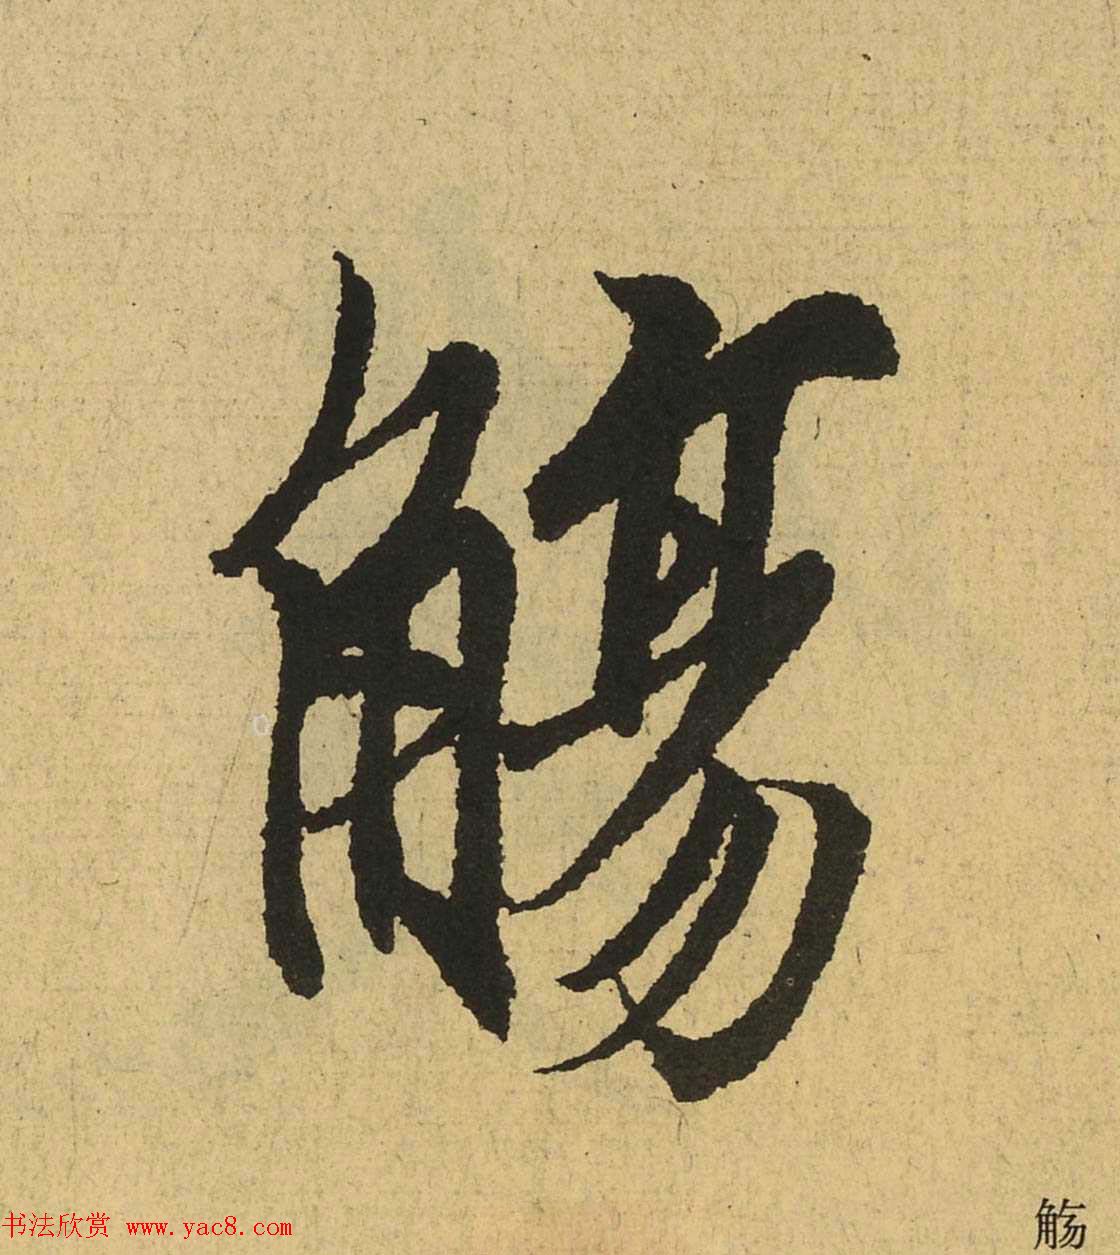 觴
觞
书法欣赏 www.yac8.com